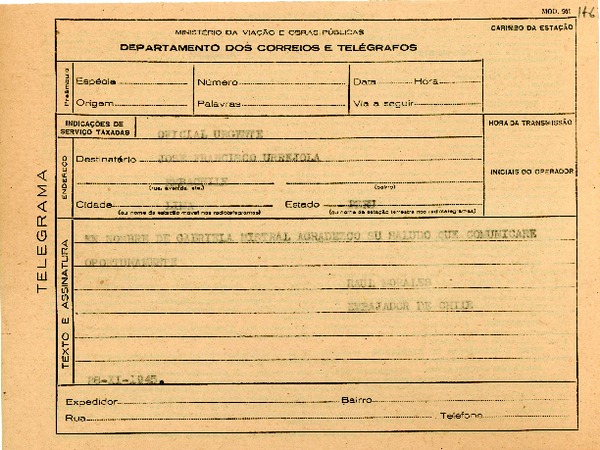 MOD. 501
146
MINISTÉRIO DA VIAÇÃO E OBRAS PÚBLICAS
DEPARTAMENTO DOS CORREIOS E TELÉGRAFOS
CARIMBO DA ESTAÇÃO
Preâmbulo
Espécie Número Data Hora
Origem Palavras Via a seguir
INDICAÇÕES DE
SERVIÇO TAXADAS
OFICIAL URGENTE
HORA DA TRANSMISSÃO
ENDEREÇO
Destinatário JOSE FRANCISCO URREJOLA
EMBACHILE
(rua, avenida, etc.) (bairro)
INICIAIS DO OPERADOR
Cidade LIMA Estado PERU
(ou nome da estação movel nos radiotelegramas) (ou nome da estação terrestre nos radiotelegramas)
TELEGRAMA
TEXTO E ASSINATURA
EN NOMBRE DE GABRIELA MISTRAL AGRADEZCO SU SALUDO QUE COMUNICARE
OPORTUNAMENTE
RAUL MORALES
EMBAJADOR DE CHILE
28-XI-1945.
Expedidor Bairro
Rua Telefone